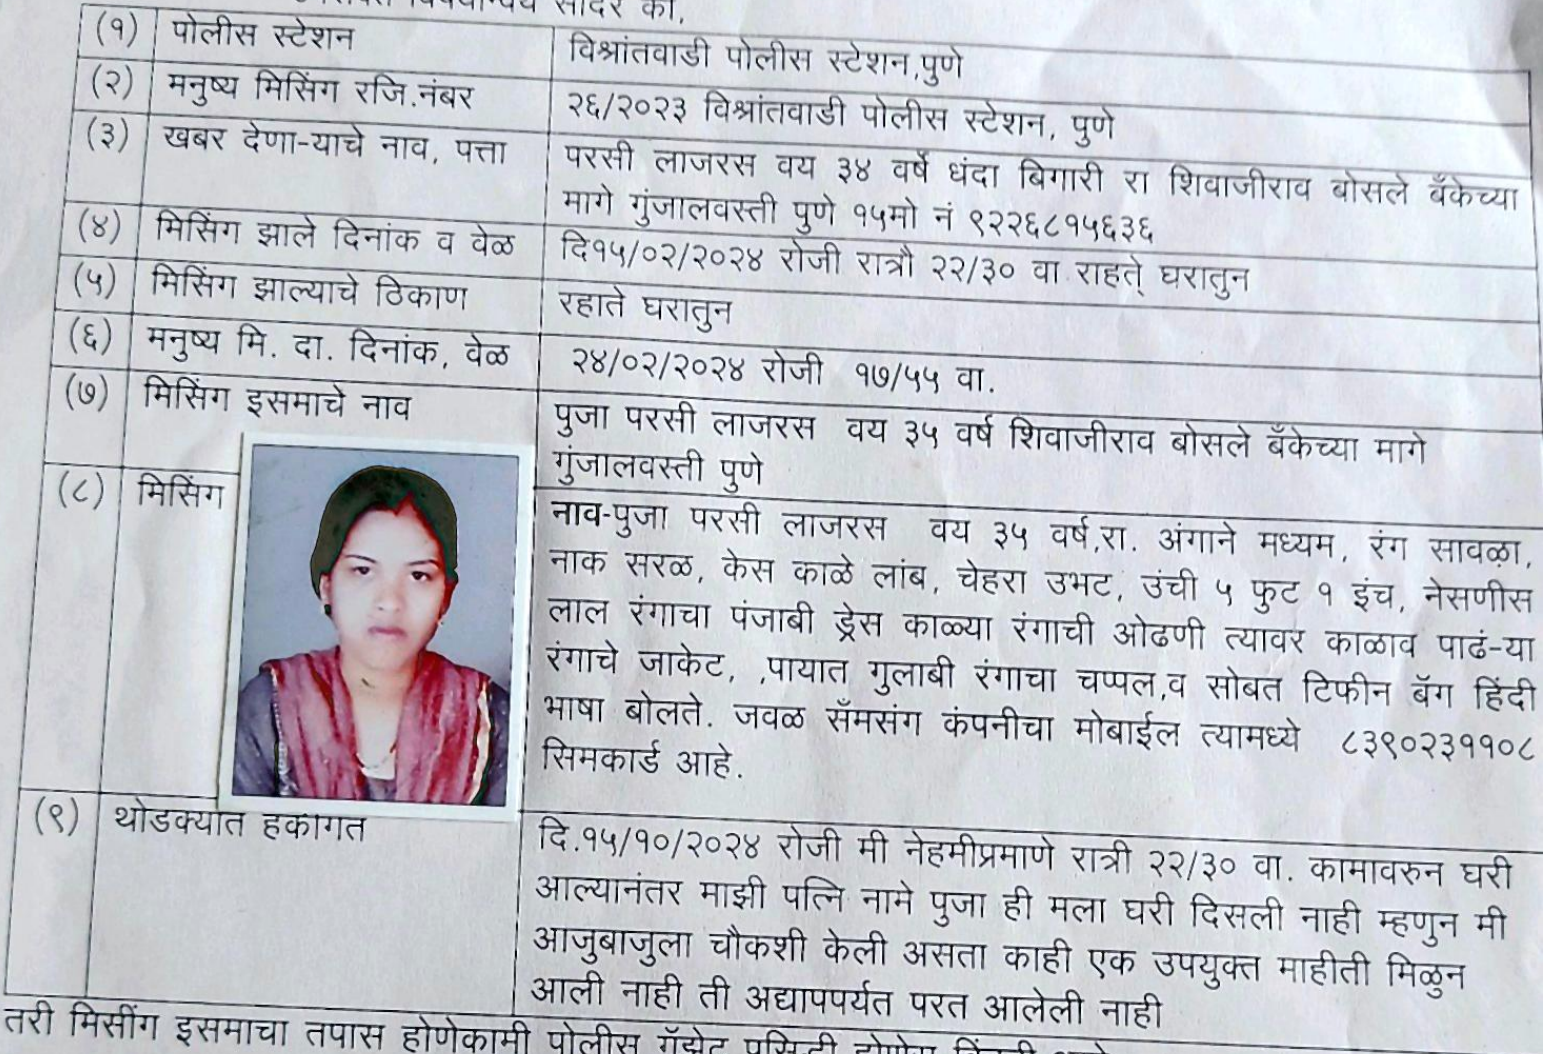 सादर की,
(१) पोलीस स्टेशन विश्रांतवाडी पोलीस स्टेशन,पुणे
(२) मनुष्य मिसिंग रजि.नंबर २६/२०२३ विश्रांतवाडी पोलीस स्टेशन, पुणे
(३) खबर देणा-याचे नाव, पत्ता परसी लाजरस वय ३४ वर्षे धंदा बिगारी रा शिवाजीराव बोसले बँकेच्या
मागे गुंजालवस्ती पुणे १५मो नं ९२२६८१५६३६
(४) मिसिंग झाले दिनांक व वेळ दि१५/०२/२०२४ रोजी रात्रौ २२/३० वा राहते् घरातुन
(५) मिसिंग झाल्याचे ठिकाण रहाते घरातुन
(६) मनुष्य मि. दा. दिनांक, वेळ २४/०२/२०२४ रोजी १७/५५ वा.
(७) मिसिंग इसमाचे नाव पुजा परसी लाजरस वय ३५ वर्ष शिवाजीराव बोसले बँकेच्या मागे
गुंजालवस्ती पुणे
(८) मिसिंग नाव-पुजा परसी लाजरस वय ३५ वर्ष,रा. अंगाने मध्यम, रंग सावळा,
नाक सरळ, केस काळे लांब, चेहरा उभट, उंची ५ फुट १ इंच, नेसणीस
लाल रंगाचा पंजाबी ड्रेस काळ्या रंगाची ओढणी त्यावर काळाव पाढं-या
रंगाचे जाकेट, ,पायात गुलाबी रंगाचा चप्पल,व सोबत टिफीन बॅग हिंदी
भाषा बोलते. जवळ सँमसंग कंपनीचा मोबाईल त्यामध्ये ८३९०२३११०८
सिमकार्ड आहे.
(९) थोडक्यात हकीगत दि.१५/१०/२०२४ रोजी मी नेहमीप्रमाणे रात्री २२/३० वा. कामावरुन घरी
आल्यानंतर माझी पत्नि नामे पुजा ही मला घरी दिसली नाही म्हणुन मी
आजुबाजुला चौकशी केली असता काही एक उपयुक्त माहीती मिळुन
आली नाही ती अद्यापपर्यत परत आलेली नाही
तरी मिसींग इसमाचा तपास होणेकामी पोलीस गॅझेट